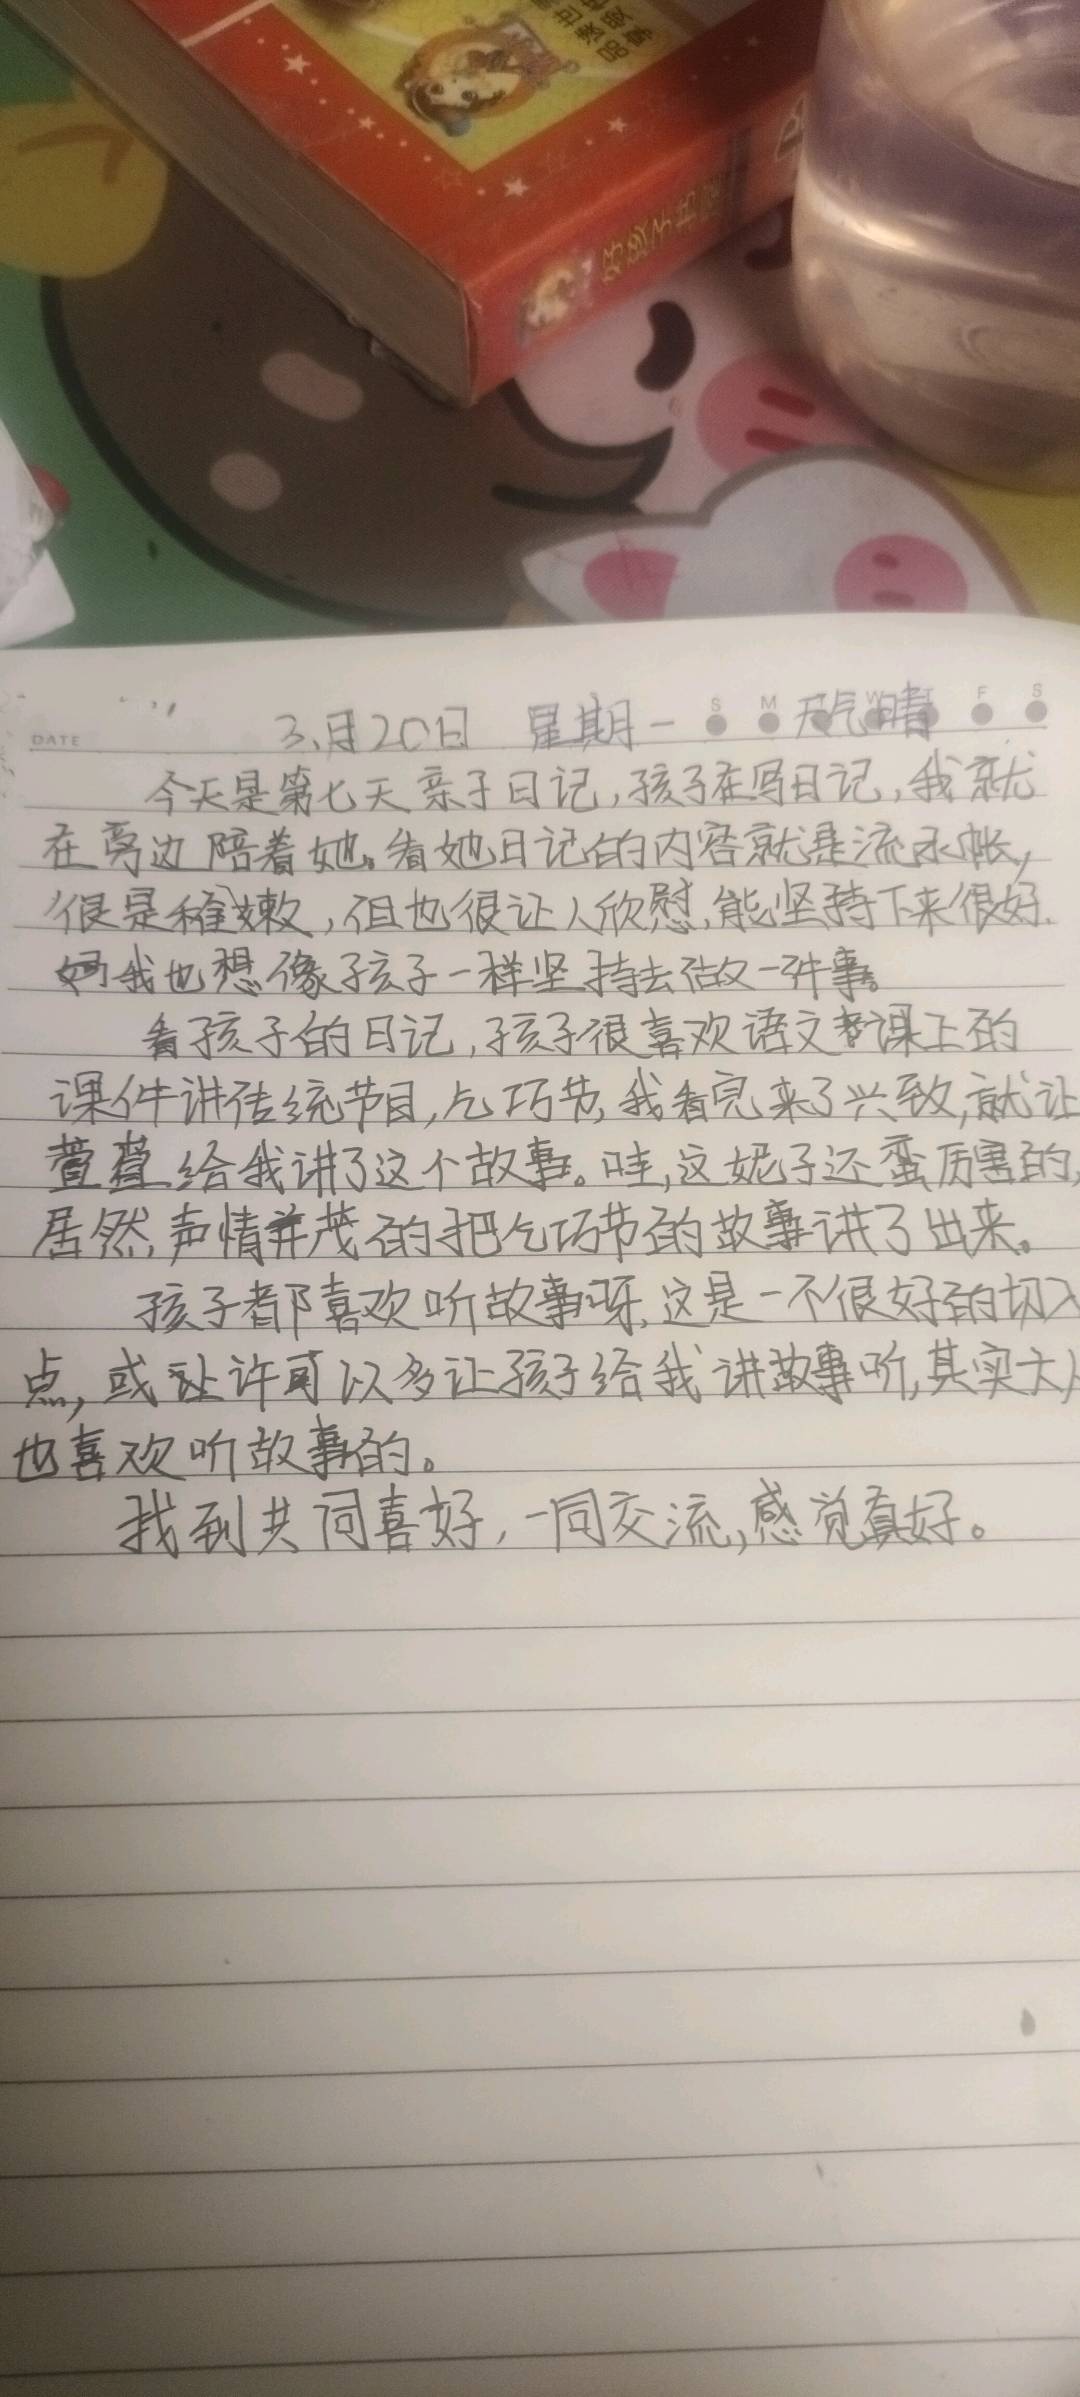 好孩子书
DATE
S M W T F S
3月20日 星期一 天气晴
今天是第七天亲子日记,孩子在写日记,我就
在旁边陪着她。看她日记的内容就是流水帐,
很是稚嫩,但也很让人欣慰,能坚持下来很好.
我也想像孩子一样坚持去做一件事。
看孩子的日记,孩子很喜欢语文课上的
课件讲传统节目,乞巧节,我看完来了兴致,就让
萱萱给我讲了这个故事。哇,这妮子还蛮厉害的,
居然,声情并茂的把乞巧节的故事讲了出来。
孩子都喜欢听故事呀,这是一个很好的切入
点,或许可以多让孩子给我讲故事听,其实大人
也喜欢听故事的。
找到共同喜好,一同交流,感觉真好。